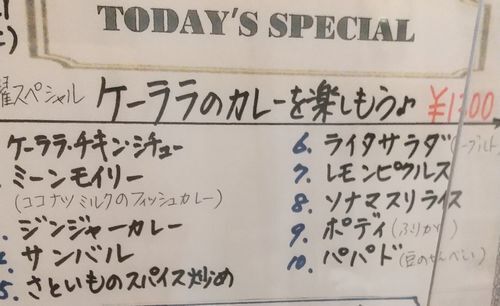 TODAY'S SPECIAL
曜スペシャル ケーララのカレーを楽しもう♪ ¥1200
ケーララ・チキン・シチュー
ミーンモイリー
(ココナツミルクのフィッシュカレー)
ジンジャーカレー
サンバル
5. さといものスパイス炒め
6. ライタサラダ(ヨーグルト)
7. レモンピクルス
8. ソナマスリライス
9. ポディ(ふりかけ)
10. パパド(豆のせんべい)